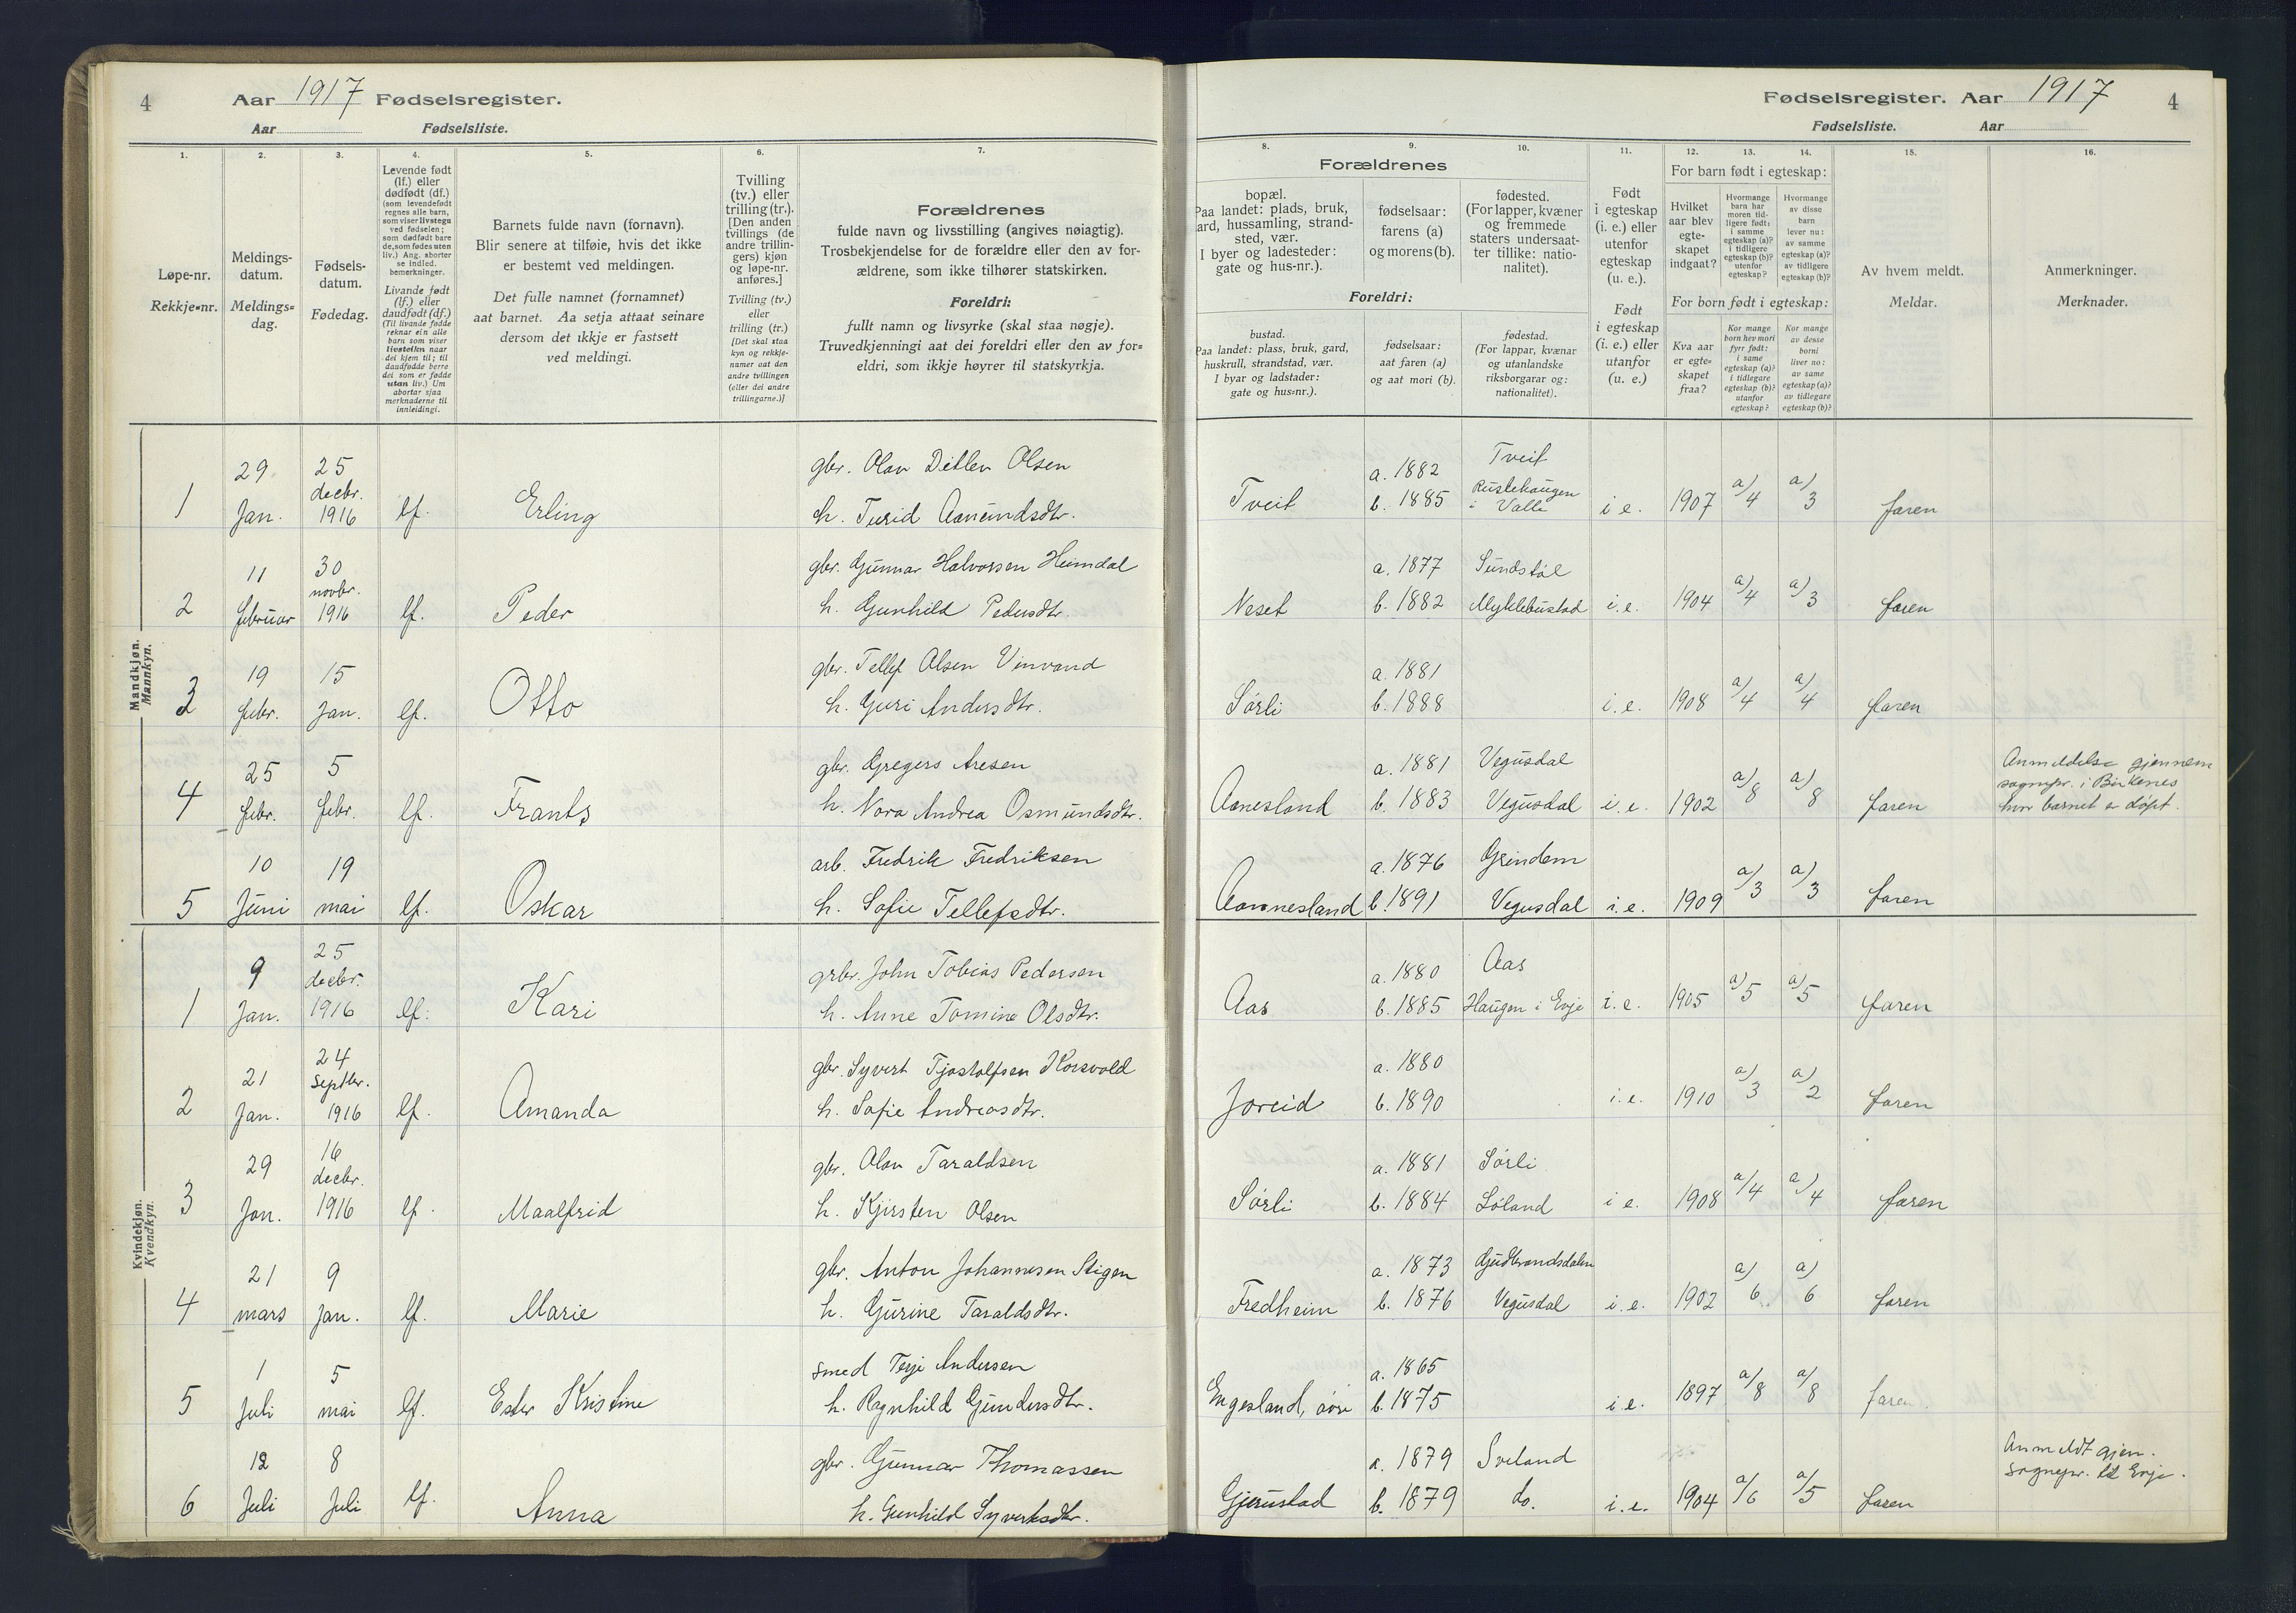 4 Aar 1917 Fødselsregister.
Aar Fødselsliste.
1. 2. 3. 4. 5. 6. 7.
Løpe-nr.
Rekkje=nr.
Meldings-
datum.
Meldings=
dag.
Fødsels-
datum.
Fødedag.
Levende født
(lf.) eller
dødfødt (df.)
(som levendefødt
regnes alle barn,
som viser livstegn
ved fødselen;
som dødfødt bare
de, som fødes uten
liv.) Ang. aborter
se indled.
bemerkninger.
Livande født
(lf.) eller
daudfødt (df.)
(Til livande fødde
reknar ein alle
barn som viser
livsteikn naar
dei kjem til; til
daudfødde berre
dei som er fødde
utan liv.) Um
abortar sjaa
merknaderne til
innleidingi.
Barnets fulde navn (fornavn).
Blir senere at tilføie, hvis det ikke
er bestemt ved meldingen.
Det fulle namnet (fornamnet)
aat barnet. Aa setja attaat seinare
dersom det ikkje er fastsett
ved meldingi.
Tvilling
(tv.) eller
trilling (tr.).
[Den anden
tvillings (de
andre trillin-
gers) kjøn
og løpe-nr.
anføres.]
Tvilling (tv.)
eller
trilling (tr.)
[Det skal staa
kyn og rekkje-
numer aat den
andre tvillingen
(eller dei andre
trillingarne.)]
Forældrenes
fulde navn og livsstilling (angives nøiagtig).
Trosbekjendelse for de forældre eller den av for-
ældrene, som ikke tilhører statskirken.
Foreldri:
fullt namn og livsyrke (skal staa nøgje).
Truvedkjenningi aat dei foreldri eller den av for=
eldri, som ikkje høyrer til statskyrkja.
Mandkjøn.
Mannkyn.
1 29 Jan. 25 decbr. 1916 lf. Erling
gbr. Olav Ditlev Olsen
h. Turid Aanundsdtr.
2 11 februar 30 novbr. 1916 lf. Peder
gbr. Gunnar Halvorsen Heimdal
h. Gunhild Pedersdtr.
3 19 febr. 15 Jan. lf. Otto
gbr. Tellef Olsen Vinvand
h. Guri Andersdtr.
4 25 febr. 5 febr. lf. Frants
gbr. Gregers Aresen
h. Nora Andrea Osmundsdtr.
5 10 Juni 19 mai lf. Oskar
arb. Fredrik Fredriksen
h. Sofie Tellefsdtr.
Kvindekjøn.
Kvendkyn.
1 9 Jan. 25 decbr. 1916 lf. Kari
grbr. John Tobias Pedersen
h. Anne Tomine Olsdtr.
2 21 Jan. 24 septbr. 1916 lf. Amanda
gbr. Syvert Tjostolfsen
h. Sofie Andreasdtr.
3 29 Jan. 16 decbr. 1916 lf. Maalfrid
gbr. Olav Taraldsen
h. Kjirsten Olsen
4 21 mars 9 Jan. lf. Marie
gbr. Anton Johannesen Stigen
h. Gurine Taraldsdtr.
5 1 Juli 5 mai lf. Ester Kristine
smed Terje Andersen
h. Ragnhild Gundersdtr.
6 12 Juli 8 Juli lf. Anna
gbr. Gunnar Thomassen
h. Gunhild Syvertsdtr.
Fødselsregister. Aar 1917 4
Fødselsliste. Aar
8. 9. 10. 11. 12. 13. 14. 15. 16.
Forældrenes
bopæl.
Paa landet: plads, bruk,
ard, hussamling, strand-
sted, vær.
I byer og ladesteder:
gate og hus-nr.).
fødselsaar:
farens (a)
og morens (b).
fødested.
(For lapper, kvæner
og fremmede
staters undersaat-
ter tillike: natio-
nalitet).
Foreldri:
bustad.
Paa landet: plass, bruk, gard,
huskrull, strandstad, vær.
I byar og ladstader:
gate og hus=nr.).
fødselsaar:
aat faren (a)
og aat mori (b).
fødestad.
(For lappar, kvænar
og utanlandske
riksborgarar og:
nationalitet).
Født
i egteskap
(i. e.) eller
utenfor
egteskap
(u. e.).
Født
i egteskap
(i. e.) eller
utanfor
(u. e.)
For barn født i egteskap:
Hvilket
aar blev
egte-
skapet
indgaat?
Hvormange
barn har
moren tid-
ligere født:
i samme
egteskap (a)?
i tidligere
egteskap (b)?
utenfor
egteskap?
Hvormange
av disse
barn
lever nu:
av samme
egteskap (a)?
av tidligere
egteskap (b)?
For born født i egteskap:
Kva aar
er egte=
skapet
fraa?
Kor mange
born hev mori
fyrr født:
i same
egteskap (a)?
i tidlegare
egteskap (b)?
utanfor
egteskap?
Kor mange
av desse
borni
liver no:
av same
egteskap (a)?
av tidlegare
egteskap (b)?
Av hvem meldt.
Meldar.
Anmerkninger.
Merknader.
Tveit a. 1882 Tveit
b. 1885 Rustehaugen i Valle i e. 1907 a/4 a/3 faren
a. 1877 Sundstøl
Neset b. 1882 Myklebustad i. e. 1904 a/4 a/3 faren
a. 1881
Sørli b. 1888 i. e. 1908 a/4 a/4 faren
a. 1881 Vegusdal
Aanesland b. 1883 Vegusdal i. e. 1902 a/8 a/8 faren
Anmeldelse gjennem
sognepr. i Birkenes
hvor barnet er døpt.
a. 1876 Grindem
Aannesland b. 1891 Vegusdal i. e. 1909 a/3 a/3 faren
a. 1880 Aas
Aas b. 1885 Haugen i Evje i. e. 1905 a/5 a/5 faren
a. 1880
Joreid b. 1890 i. e. 1910 a/3 a/2 faren
a. 1881 Sørli
Sørli b. 1884 Løland i e. 1908 a/4 a/4 faren
a. 1873 Gudbrandsdalen
Fredheim b. 1876 Vegusdal i. e. 1902 a/6 a/6 faren
a. 1865
Engesland, øvre b. 1875 i. e. 1897 a/8 a/8 faren.
a. 1879 Sveland
Gjerustad b. 1879 do. i. e. 1904 a/6 a/5 faren
Anmeldt gjen.
sognepr. til Evje.